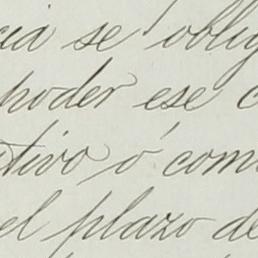 cia se oblig
poder ese c
tivo ó com
el plazo de